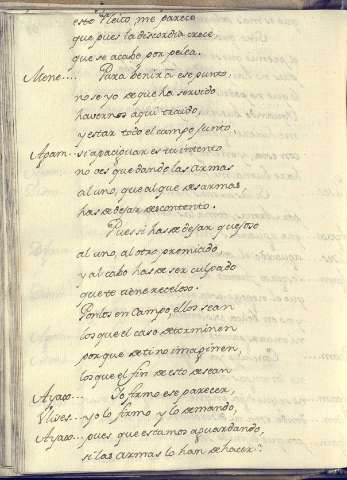 este Pleito, me parece
que pues la discordia crece,
que se acabe por pelea.
Mene.... Para benir a ese punto,
no se yo de que ha servido
havernos aqui traido,
y estar todo el campo junto,
Agam.. si apaciguar es tu intento
no ves que dando las armas
al uno, que al que desarmas
has de dejar descontento.
Pues si has de dejar quejoso
al uno, al otro premiado,
y al cabo has de ser culpado
que te tiene receloso.
Ponlos en Campo, ellos sean
los que el caso determinen
porque de ti no imaginen,
los que el fin de esto desean
Ayax... Yo firmo ese parecer,
Vlises.. y yo lo firmo y lo demando,
Ayax.. pues que estamos aguardando,
si las armas lo han de hacer?